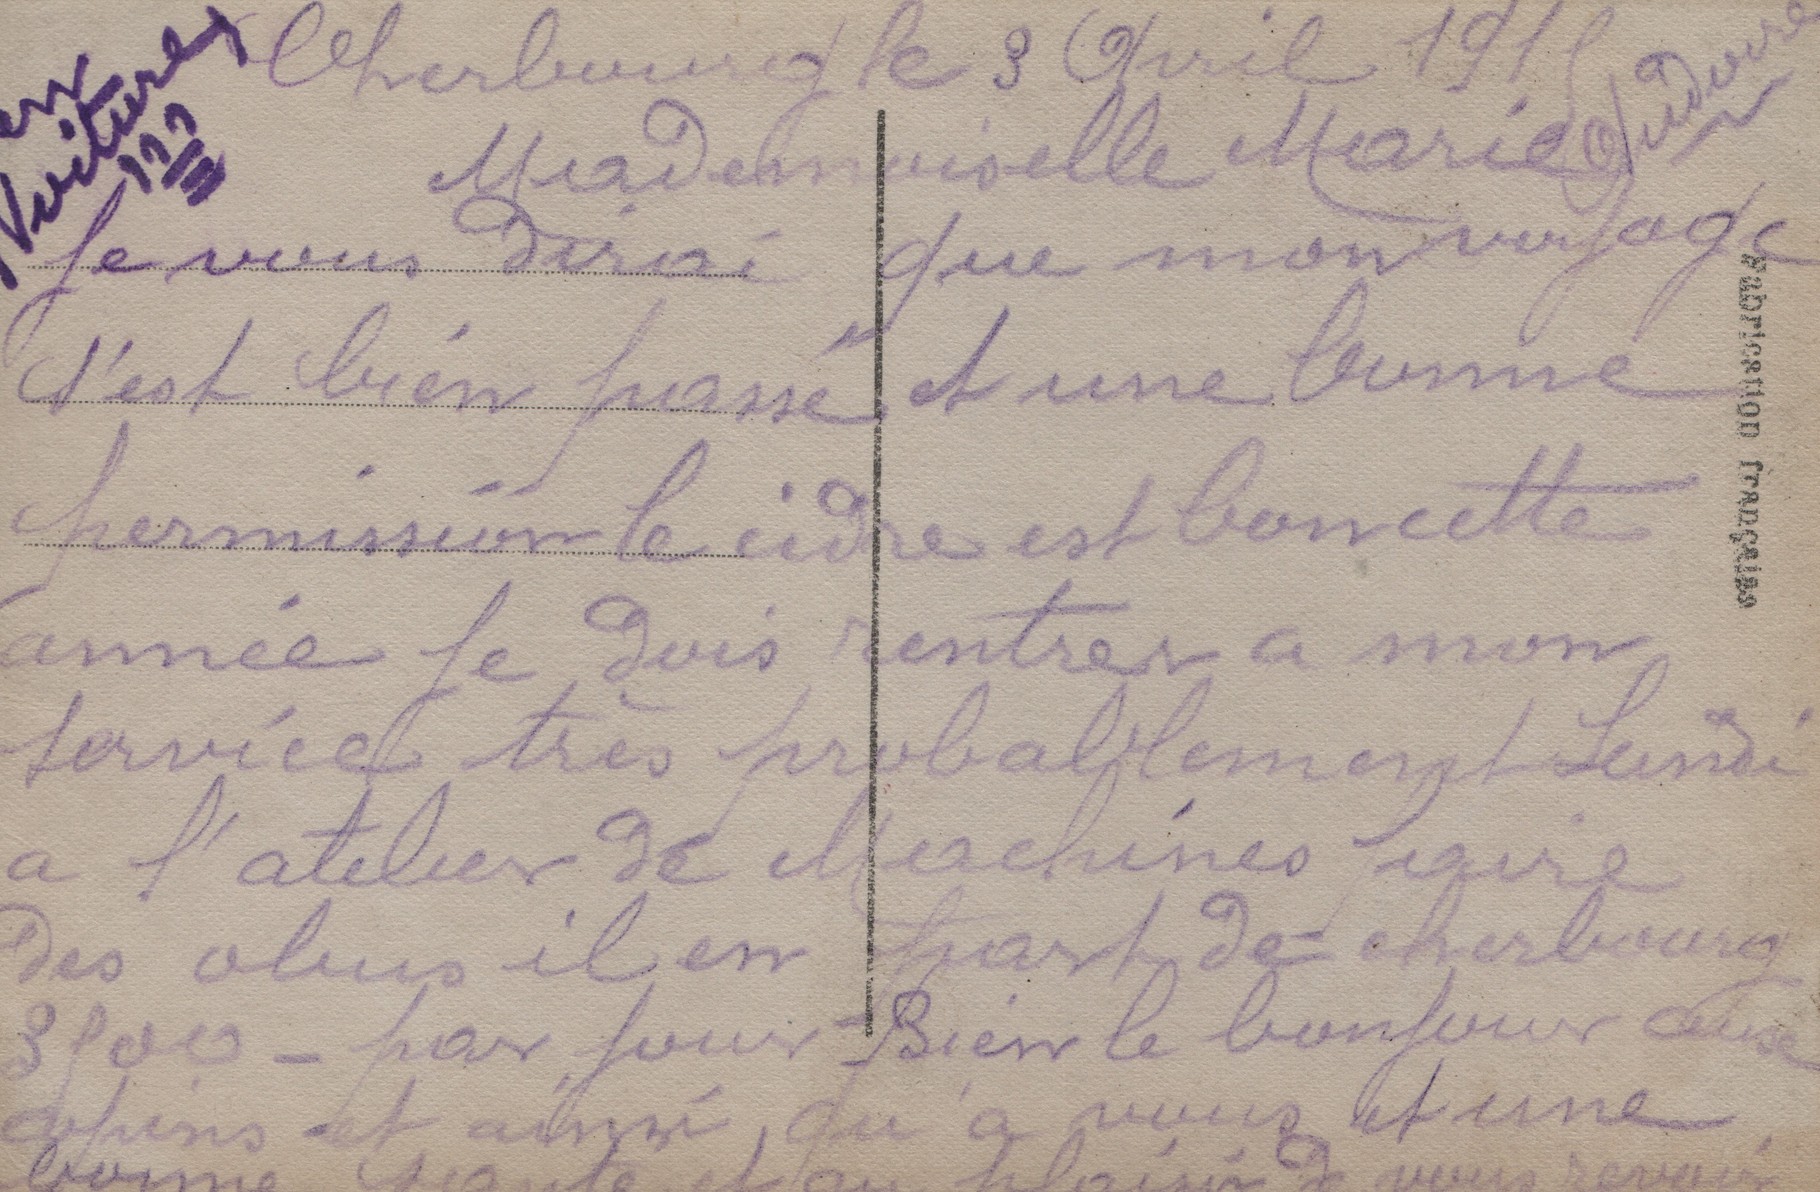 Cherbourg le 3 Avril 191
Mademoiselle Marie
Je vous dirai que mon voyage
s'est bien passé et une bonne
permission le cidre est bon cette
année Je dois rentrer a mon
service très probablement Lundi
a l'atelier de Machines faire
des obus il en part de cherbourg
3500 - par jour - Bien le bonjour aux
copins - et ainsi qu'a vous et une
bonne santé et au plaisir de vous revoir
Voitures
???
Fabrication française